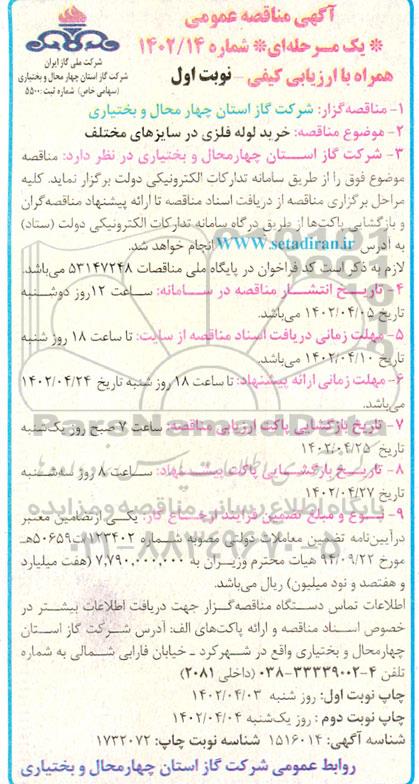 آگهی مناقصه عمومی
* یک مرحله‌ای* شماره ۱۴۰۲/۱۴
همراه با ارزیابی کیفی - نوبت اول
شرکت ملی گاز ایران
شرکت گاز استان چهار محال و بختیاری
(سهامی خاص) شماره ثبت: ۵۵۰۰
۱- مناقصه‌گزار: شرکت گاز استان چهار محال و بختیاری
۲- موضوع مناقصه: خرید لوله فلزی در سایزهای مختلف
۳- شرکت گاز اسـتان چهارمحال و بختیاری در نظر دارد: مناقصه
موضوع فوق را از طریق سامانه تدارکات الکترونیکی دولت برگزار نماید. کلیه
مراحل برگزاری مناقصه از دریافت اسناد مناقصه تا ارائه پیشنهاد مناقصه‌گران
و بازگشایی پاکت‌ها از طریق درگاه سامانه تدارکات الکترونیکی دولت (ستاد)
به آدرس www.setadiran.ir انجام خواهد شد.
لازم به ذکر است کد فراخوان در پایگاه ملی مناقصات ۵۳۱۴۷۲۴۸ می‌باشد.
۴- تاریـخ انتشـار مناقصه در سـامانه: ساعت ۱۲روز دوشـنبه
تاریخ ۱۴۰۲/۰۴/۰۵ می‌باشد.
۵- مهلت زمانی دریافت اسناد مناقصه از سایت: تا ساعت ۱۸ روز شنبه
تاریخ ۱۴۰۲/۰۴/۱۰ می‌باشد.
۶- مهلت زمانی ارائه پیشنهاد: تا ساعت ۱۸ روز شنبه تاریخ ۱۴۰۲/۰۴/۲۴
می‌باشد.
۷- تاریخ بازگشایی پاکت ارزیابی مناقصه: ساعت ۷ صبح روز یک‌شنبه
تاریخ ۱۴۰۲/۰۴/۲۵
۸- تاریـخ بازگشـایی پاکت پیشـنهاد: سـاعت ۸ روز سه‌شنبه
تاریخ ۱۴۰۲/۰۴/۲۷
۹- نـوع و مبلغ تضمین فرآیند ارجـاع کار: یکـی از تضامین معتبر
در آیین‌نامه تضمین معاملات دولتی مصوبه شـماره ۱۲۳۴۰۲/ت۵۰۶۵۹هـ
مورخ ۹۴/۰۹/۲۲ هیات محترم وزیـران به ۷,۷۹۰,۰۰۰,۰۰۰ (هفت میلیارد
و هفتصد و نود میلیون) ریال می‌باشد.
اطلاعات تماس دسـتگاه مناقصه‌گزار جهت دریافت اطلاعات بیشـتر در
خصوص اسـناد مناقصه و ارائه پاکت‌های الف: آدرس شـرکت گاز اسـتان
چهارمحال و بختیاری واقع در شهرکرد - خیابان فارابی شمالی به شماره
تلفن ۴-۳۳۳۳۹۰۰۲-۰۳۸ (داخلی ۲۰۸۱)
چاپ نوبت اول: روز شنبه ۱۴۰۲/۰۴/۰۳
چاپ نوبت دوم : روز یک‌شنبه ۱۴۰۲/۰۴/۰۴
شناسه آگهی: ۱۵۱۶۰۱۴ شناسه نوبت چاپ: ۱۷۳۲۰۷۲
روابط عمومی شرکت گاز استان چهارمحال و بختیاری
ParsNamadData
پایگاه اطلاع رسانی مناقصه و مزایده
۰۲۱-۸۸۳۴۹۶۷۰-۵